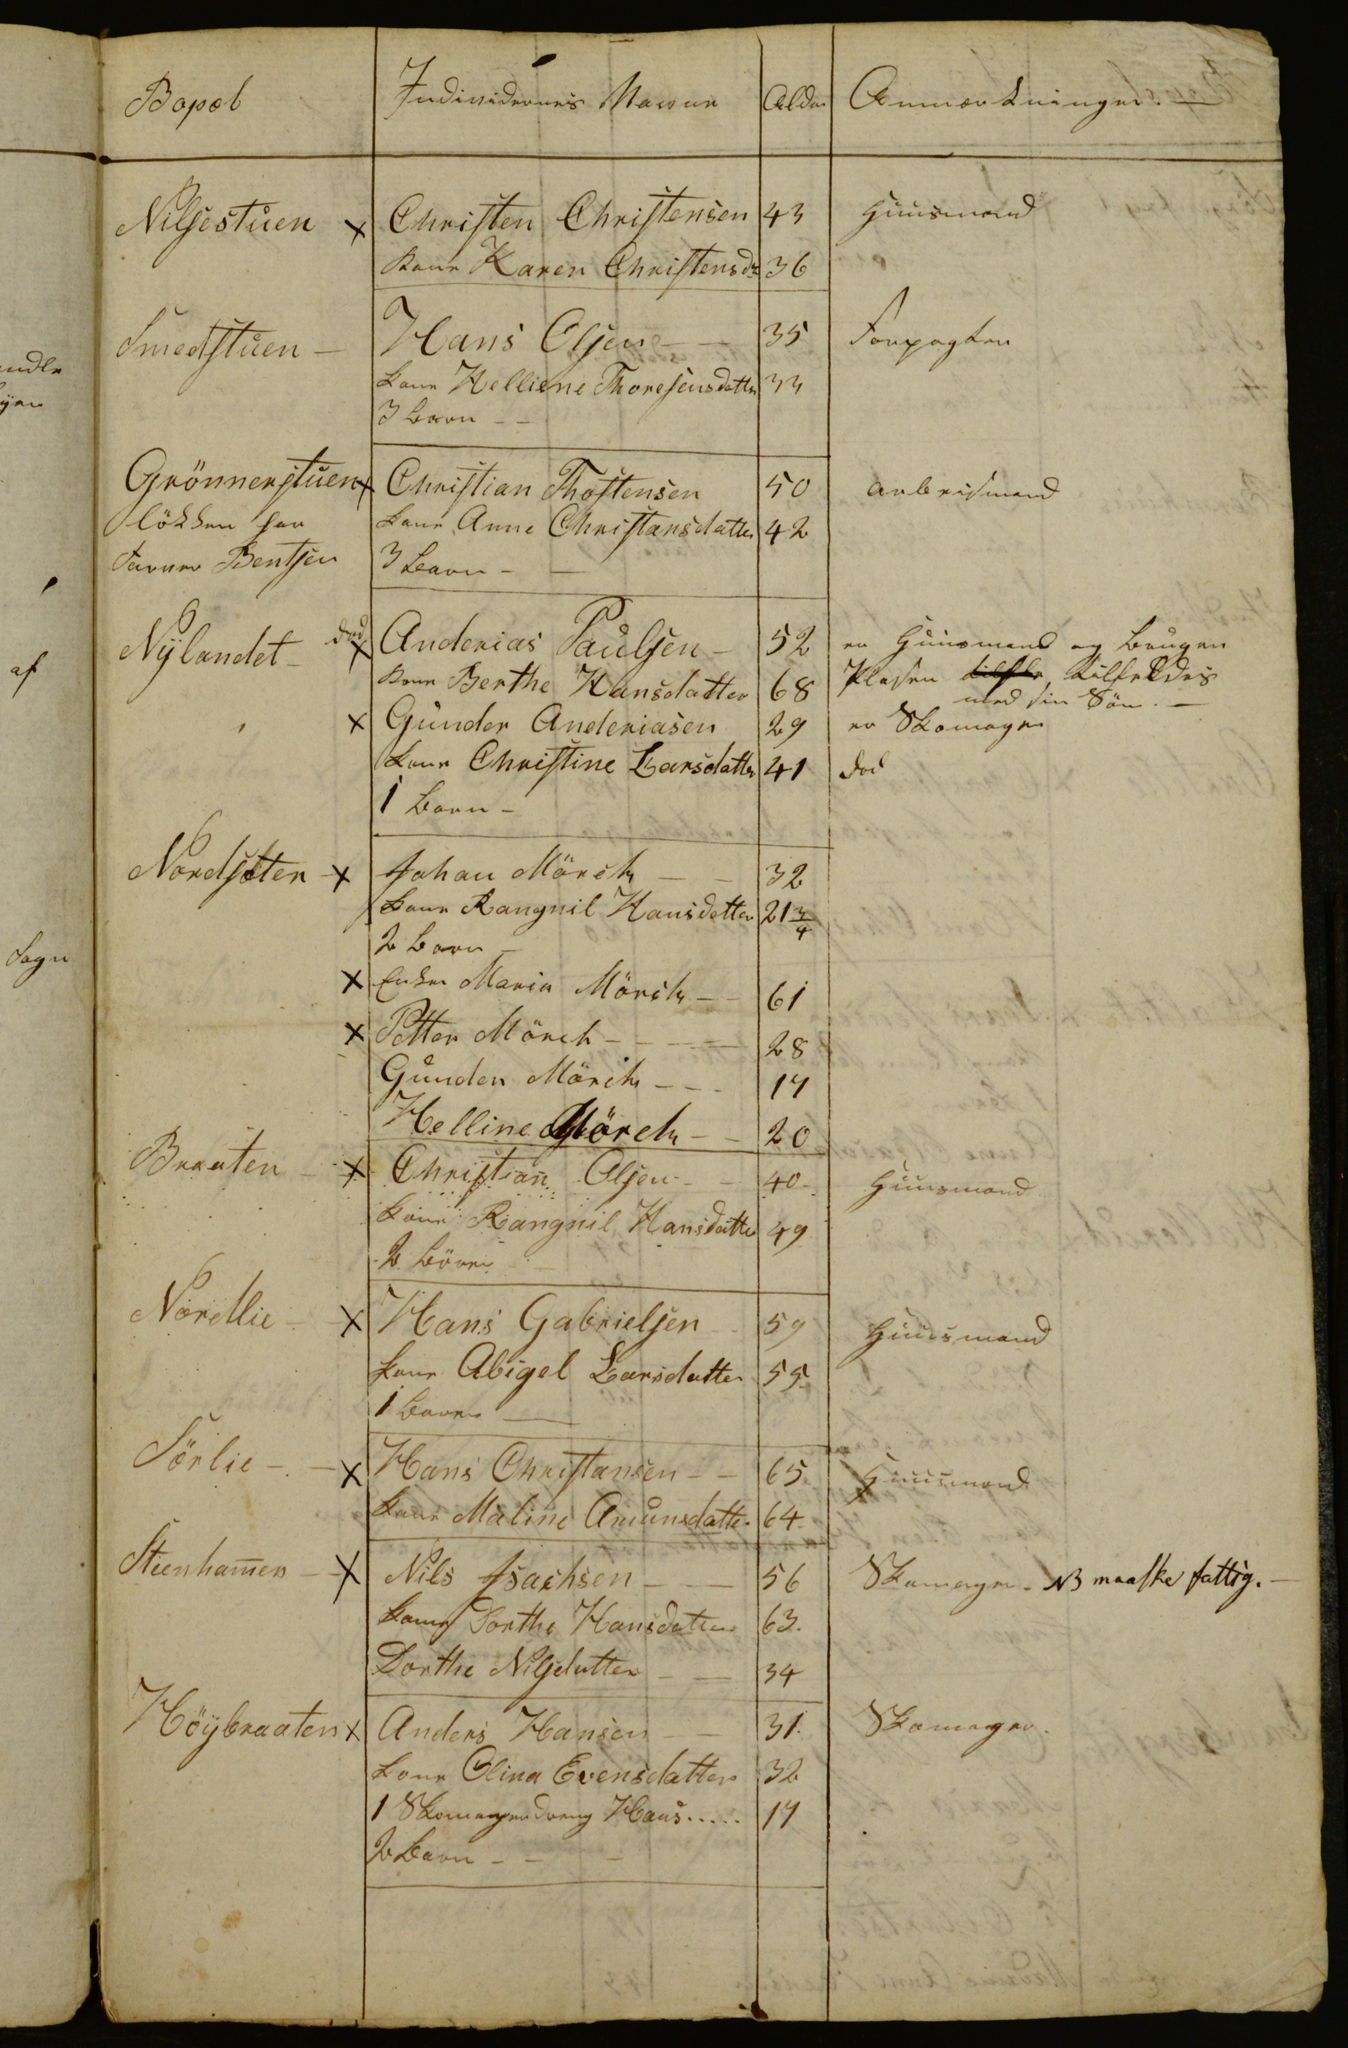 Bopæl Individernes Navne Alder Anmærkninger.
Niljestuen x Christen Christensen 43 Huusmand
Kone Karen Christensdr 36
Smedstuen - Hans Olsen - 35 Forpagter
Kone Helliene Thoresensdatter 33
3 Børn - -
Grönnerstuen x Christian Thostensen 50 Arbeidsmand
lökken har Kone Anne Christansdatter 42
Bentsen 3 Børn - -
Nÿlandet - død x Anderias Paulsen - 52 er Huusmand og bruger
Kone Berthe Hansdatter 68 Pladsen tilfelles
med sin Søn. -
x Gunder Anderiasen 29 er Skomager
Kone Christine Larsdatter 41 død
1 Barn -
Nordsæter - x Johan Mörch - - 32
Kone Rangnil Hansdatter 21 3/4
2 Børn -
x Enken Maria Mörch - - 61
x Petter Mörch - - - 28
Gunder Mörch - - - 17
Helline Mörch - - 20
Braaten - x Christian Olsen - - 40 - Huusmand
Kone Rangnil Hansdatter 49
2 Börn
Nordlie - x Hans Gabrielsen - 59 Huusmand
Kone Abigel Larsdatter 55
1 Barn -
Sörlie - - x Hans Christansen - - 65 Huusmand
Kone Maline Amunsdatter 64
Steenhamer - x Nils Isachsen - - 56 Skomager. NB maaske fattig. -
Kone Dorthe Hansdatter 63.
Dorthe Nilsdatter - - 34
Höÿbraaten x Anders Hansen - - 31. Skomager.
Kone Olina Evensdatter 32
1 Skomagerdreng Hans ..... 17
2 Børn - - -
af
Sogn